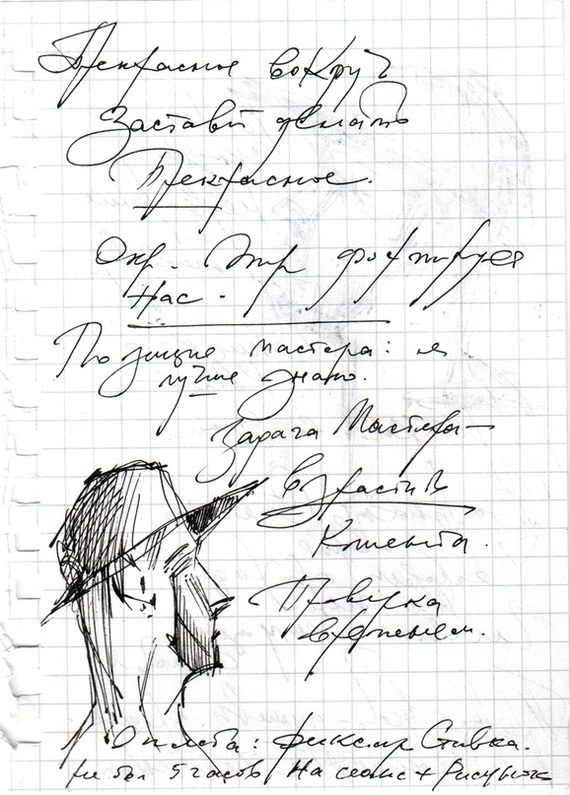 Прекрасное вокруг
Заставит делать
Прекрасное.
Окр. Мир формирует
Нас.
Позиция мастера: я
лучше знаю.
Задача Мастера —
возрастить
Клиента.
Проверка
временем.
Оплата: фиксир Ставка.
5 часов На сеанс + Рисунок